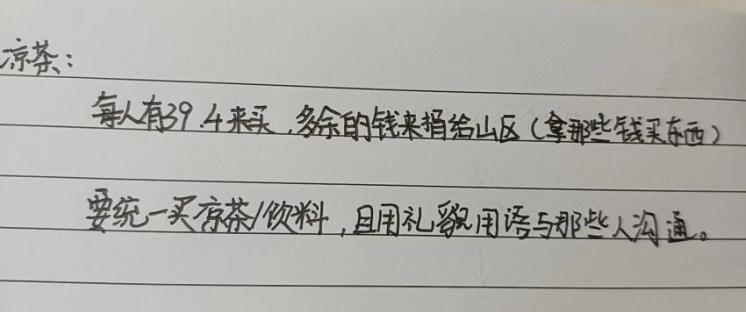 凉茶：
每人有39.4来买，多余的钱来捐给山区（拿那些钱买东西）
要统一买凉茶/饮料，且用礼貌用语与那些人沟通。